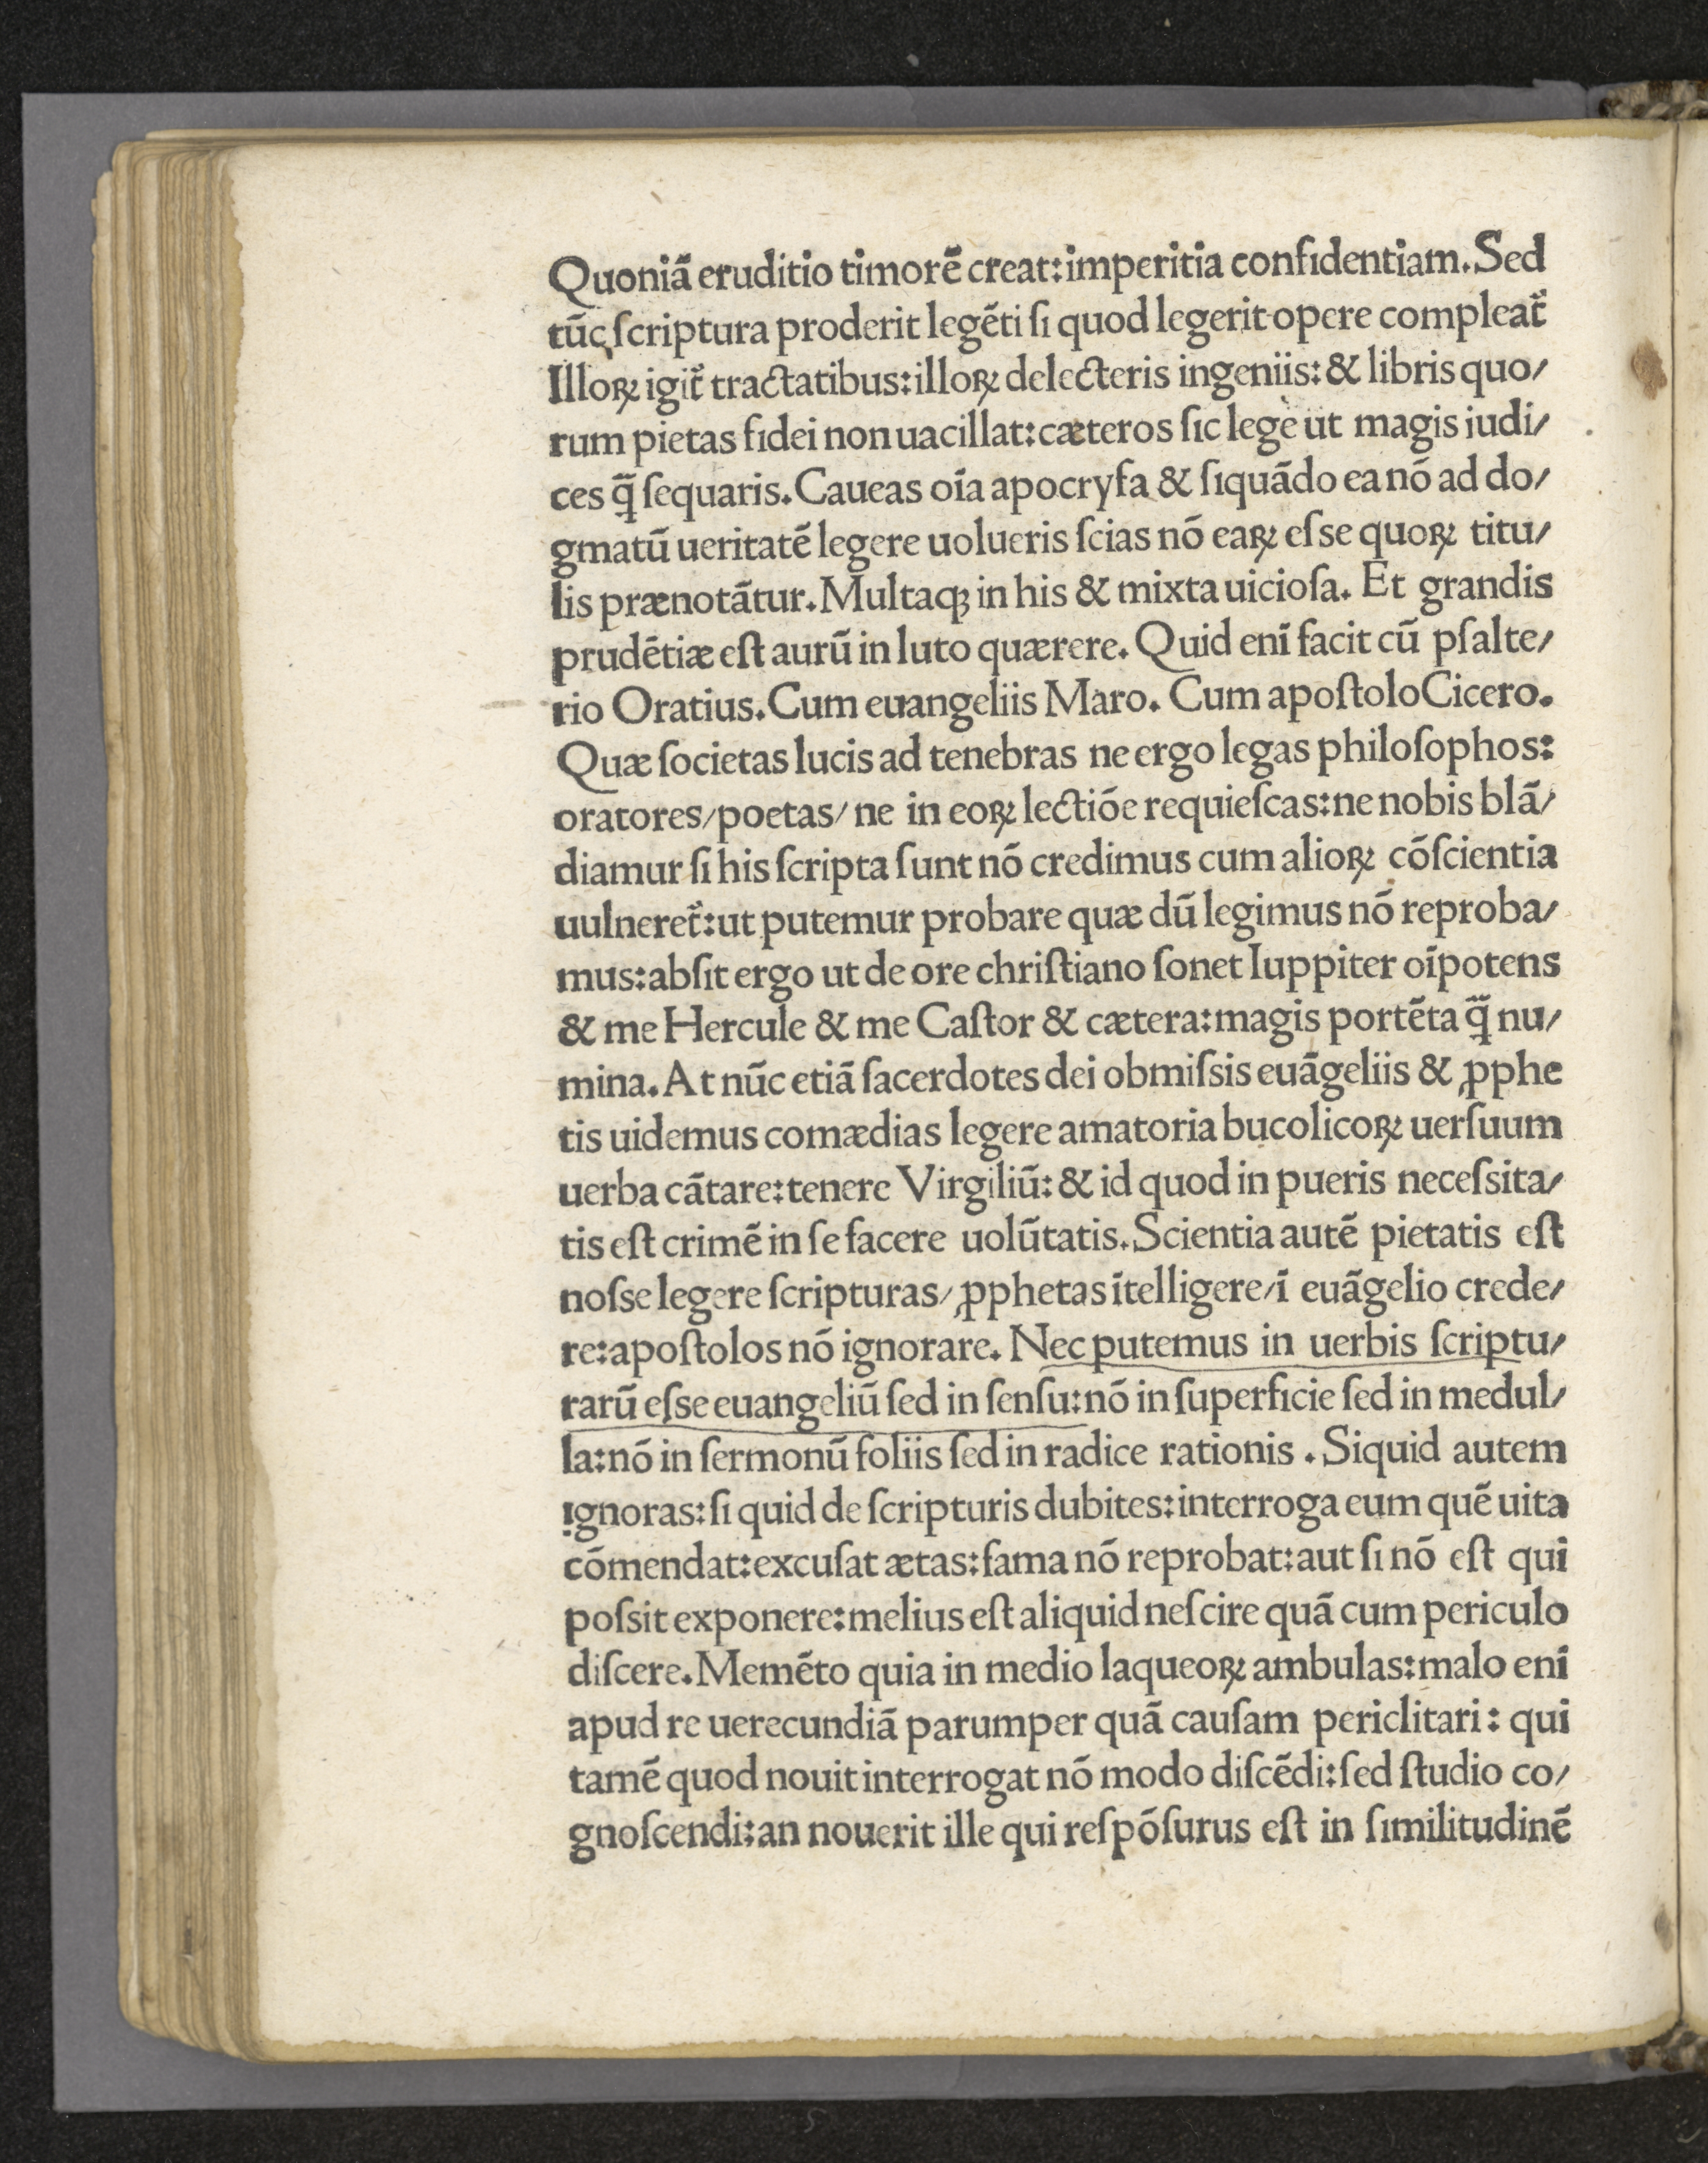 Quoniā eruditio timorē creat:imperitia confidentiam. Sed
tūc ſcriptura proderit legēti ſi quod legerit opere compleat᷑
Illoꝝ igit᷑ tractatibus:illoꝝ delecteris ingeniis:& libris quo/
rum pietas fidei non uacillat:cæteros ſic lege ut magis iudi/
ces q̄ ſequaris. Caueas oīa apocryfa & ſiquādo ea nō ad do/
gmatū ueritatē legere uolueris ſcias nō eaꝝ eſse quoꝝ titu/
lis prænotātur. Multaqꝫ in his & mixta uicioſa. Et grandis
prudētiæ eſt aurū in luto quærere. Quid enī facit cū pſalte/
rio Oratius. Cum euangeliis Maro. Cum apoſtolo Cicero.
Quæ ſocietas lucis ad tenebras ne ergo legas philoſophos:
oratores/poetas/ ne in eoꝝ lectiōe requieſcas:ne nobis blā/
diamur ſi his ſcripta ſunt nō credimus cum alioꝝ cōſcientia
uulneret᷑:ut putemur probare quæ dū legimus nō reproba/
mus:abſit ergo ut de ore chriſtiano ſonet Iuppiter oīpotens
& me Hercule & me Caſtor & cætera:magis portēta q̄ nu/
mina. At nūc etiā ſacerdotes dei obmiſsis euāgeliis & ꝓphe
tis uidemus comædias legere amatoria bucolicoꝝ uerſuum
uerba cātare:tenere Virgiliū: & id quod in pueris neceſsita/
tis eſt crimē in ſe facere uolūtatis. Scientia autē pietatis eſt
noſse legere ſcripturas/ ꝓphetas ītelligere/ī euāgelio crede/
re:apoſtolos nō ignorare. Nec putemus in uerbis ſcriptu/
rarū eſse euangeliū ſed in ſenſu:nō in ſuperficie ſed in medul/
la:nō in ſermonū foliis ſed in radice rationis . Siquid autem
ignoras:ſi quid de ſcripturis dubites:interroga eum quē uita
cōmendat:excuſat ætas:fama nō reprobat:aut ſi nō eſt qui
poſsit exponere:melius eſt aliquid neſcire quā cum periculo
diſcere. Memēto quia in medio laqueoꝝ ambulas:malo enī
apud re uerecundiā parumper quā cauſam periclitari: qui
tamē quod nouit interrogat nō modo diſcēdi:ſed ſtudio co/
gnoſcendi:an nouerit ille qui reſpōſurus eſt in ſimilitudinē